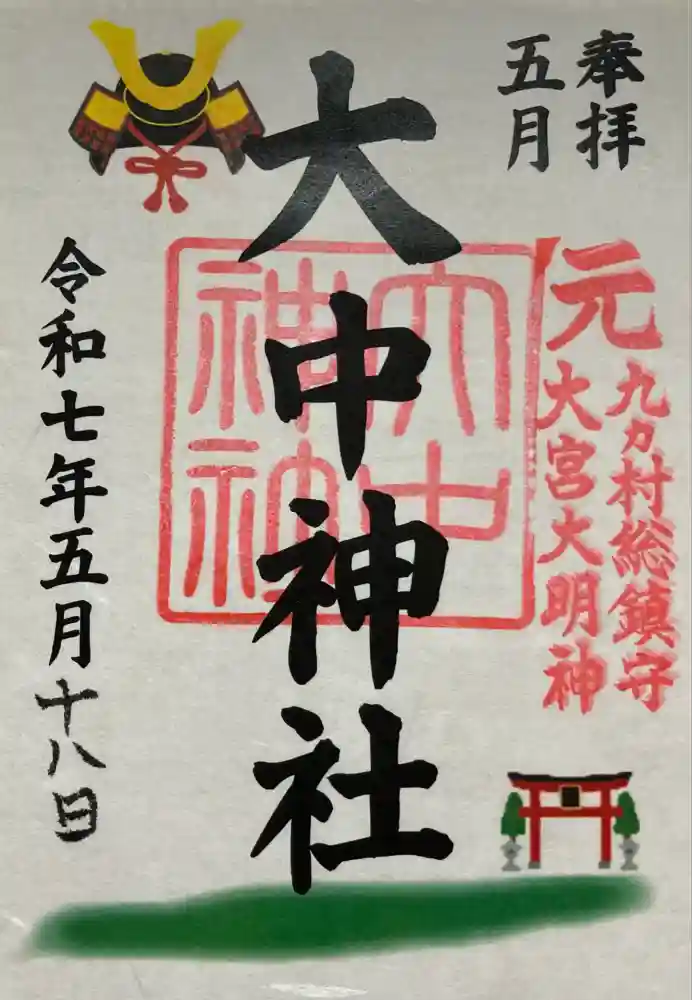 奉拝
五月
元
九ヵ村総鎮守
大宮大明神
大中神社
大中
神社
令和七年五月十八日